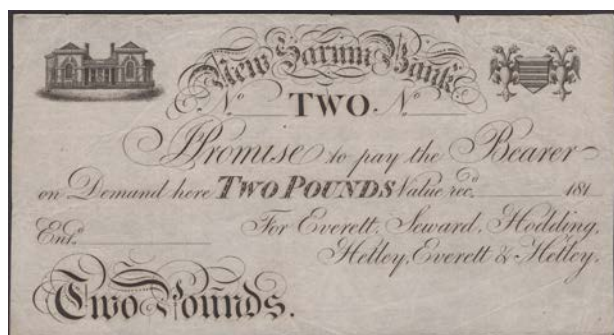 New Sarum Bank
No TWO No
I Promise to pay the Bearer
on Demand here TWO POUNDS Value recd 181
Entd For Everett, Seward, Hodding,
Hetley, Everett & Hetley.
Two Pounds.